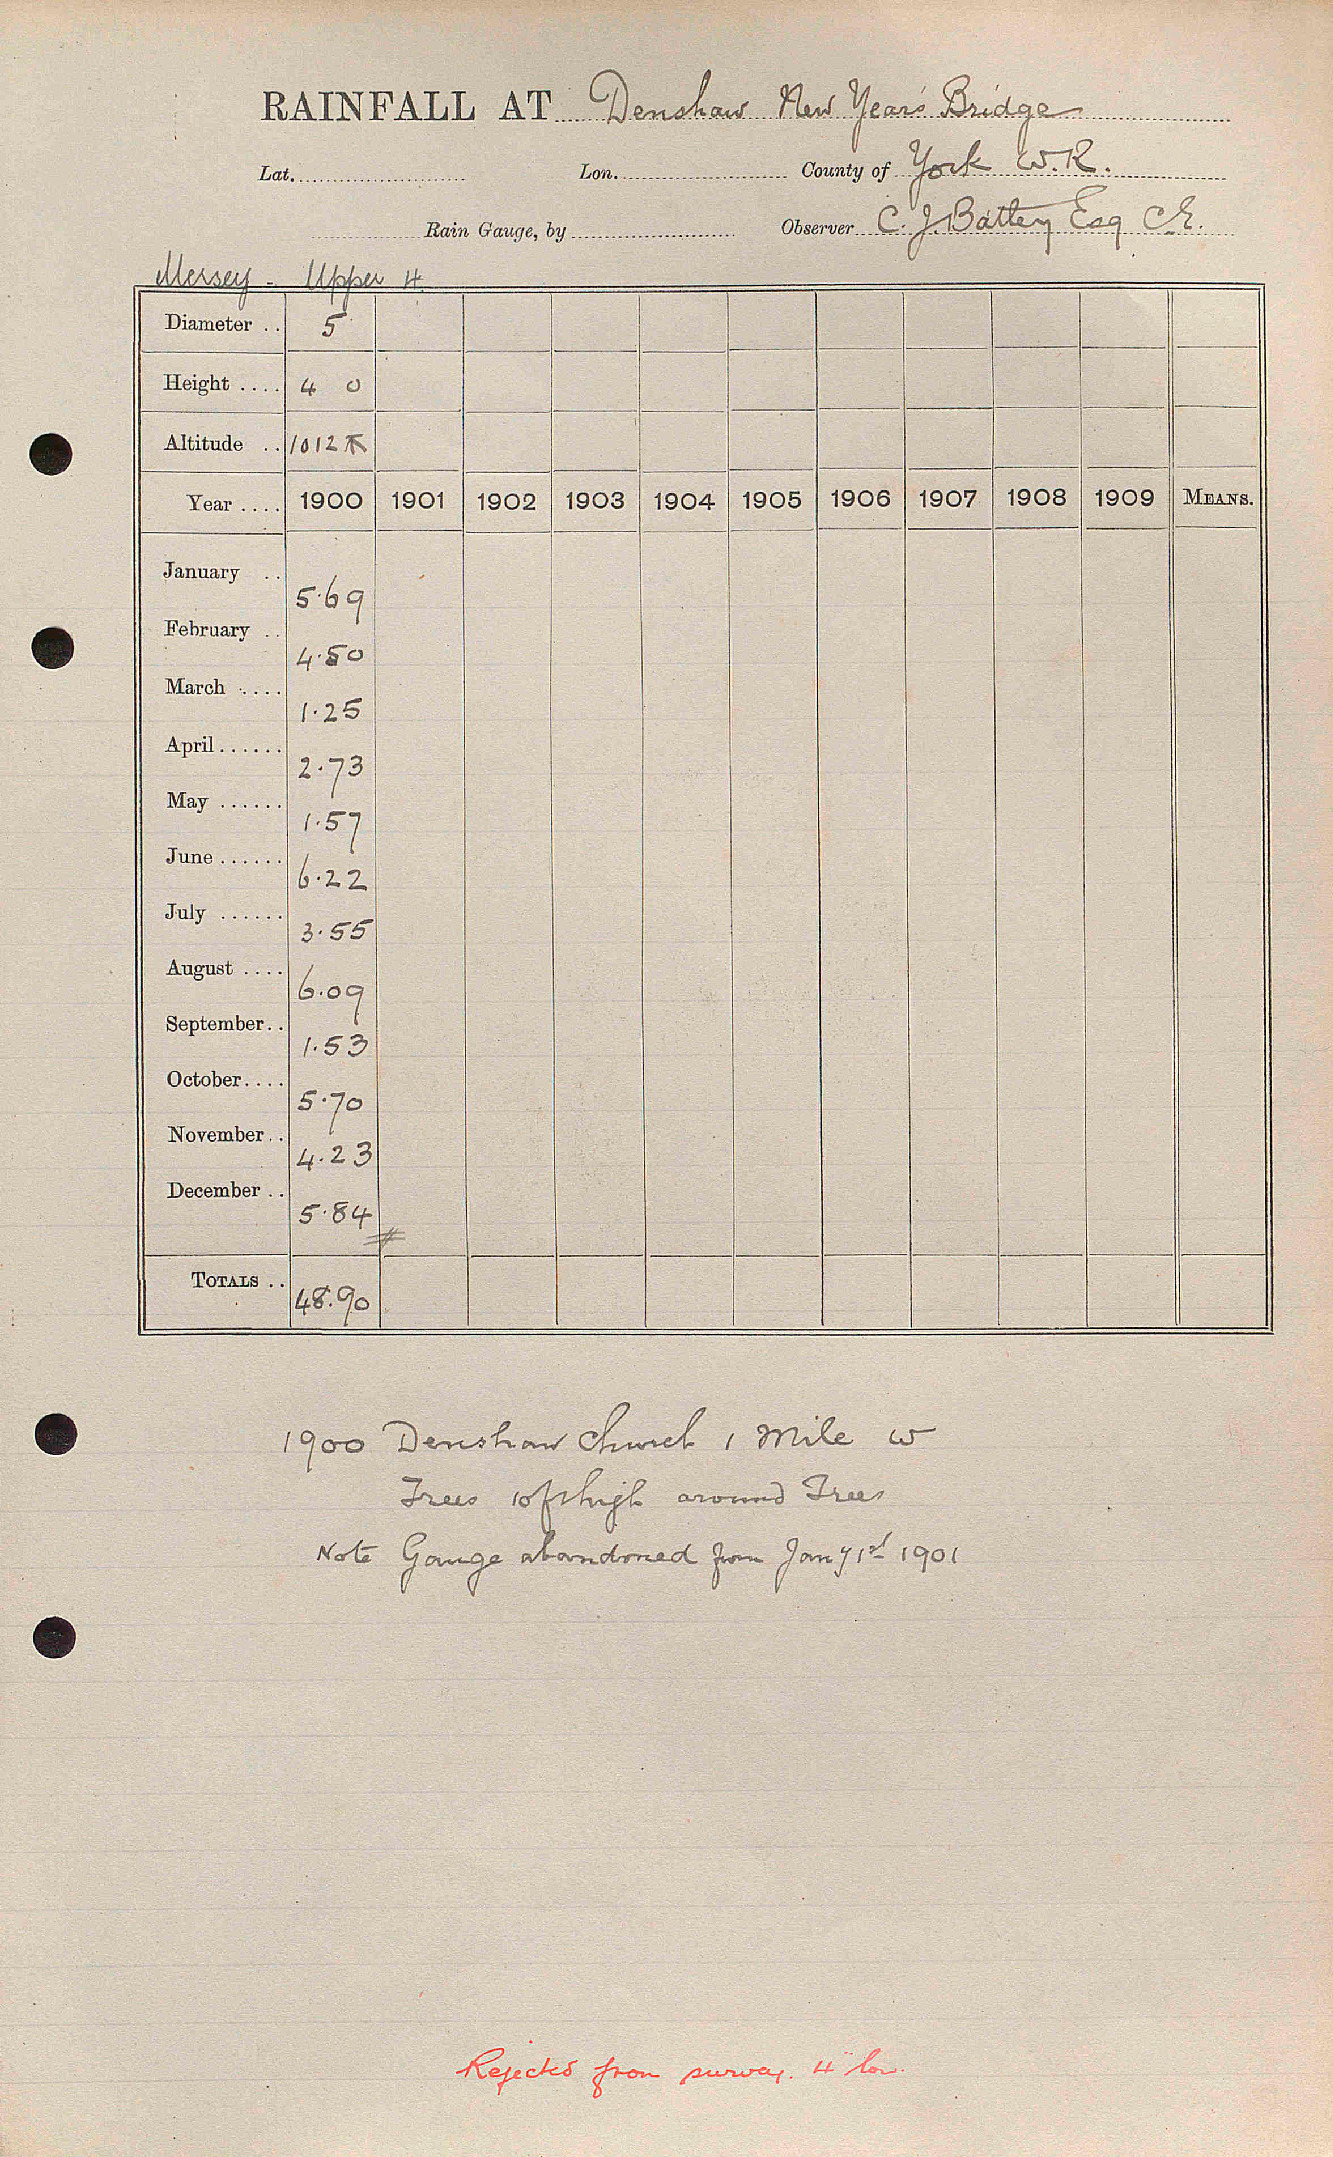 RAINFALL AT Denshaw New Year's Bridge
Lat. Lon. County of York W.R.
Rain Gauge, by Observer C. J. Battey Esq C.E.
Mersey - Upper 4
Diameter .. 5
Height .... 4 0
Altitude .. 1012
Year .... 1900 1901 1902 1903 1904 1905 1906 1907 1908 1909 MEANS.
January .. 5.69
February .. 4.50
March .... 1.25
April ...... 2.73
May ...... 1.57
June ...... 6.22
July ...... 3.55
August .... 6.09
September .. 1.53
October .... 5.70
November .. 4.23
December .. 5.84
#
TOTALS .. 48.90
1900 Denshaw Church 1 Mile W
Trees 10ft high around Trees
Note Gauge abandoned from Jany 1st 1901
Rejected from survey. 4" low.